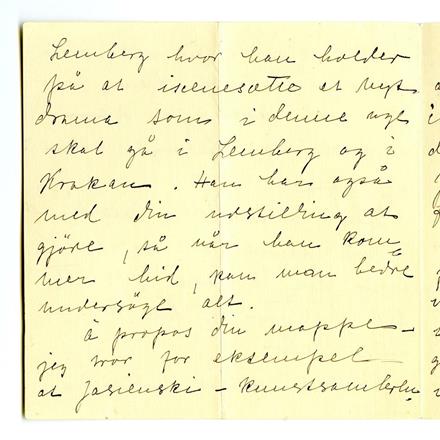 Lemberg hvor han holder
på at iscenesætte et nyt
drama som i denne uge
skal gå i Lemberg og i
Krakau. Han har også
med din udstilling at
gjöre, så når han kom
mer hid, kan man bedre
undersöge alt.
À propos din mappe -
jeg tror for eksempel
at Jasienski - kunstsamleren